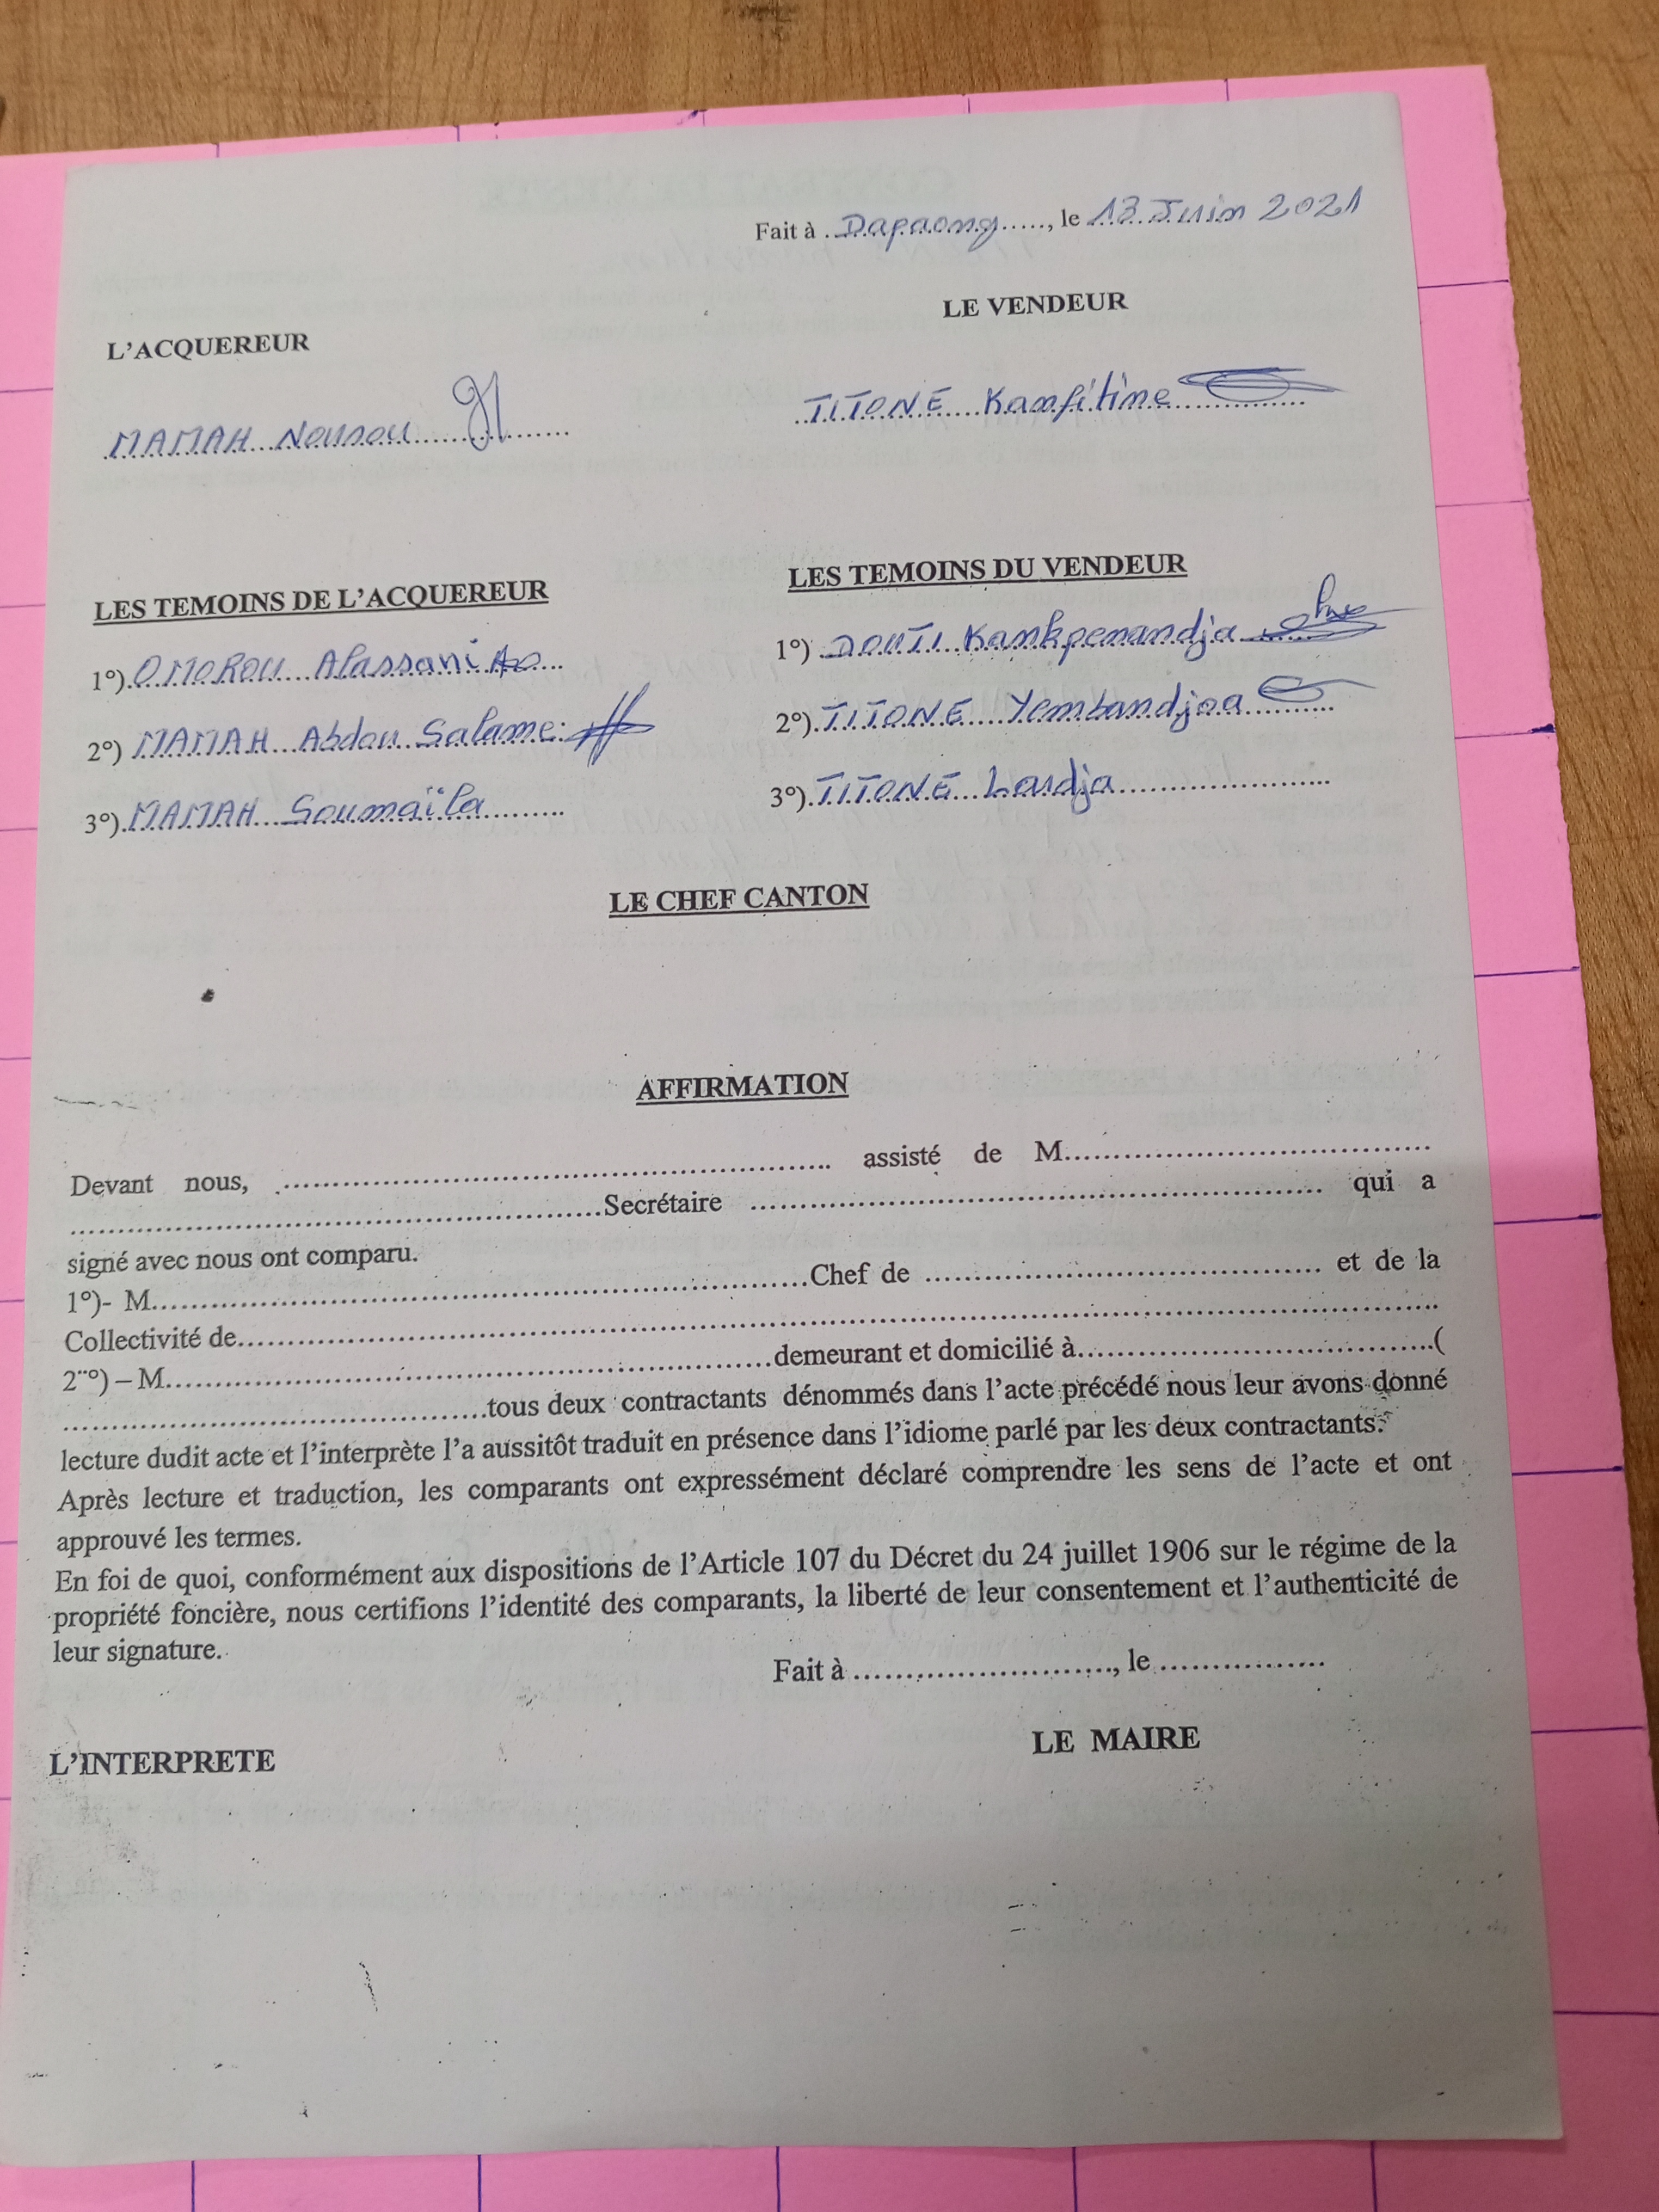 Fait à ..Dapaong......, le 13 Juin 2021
LE VENDEUR
L'ACQUEREUR
TITONE Kanfitine
MAMAH Nousou
LES TEMOINS DU VENDEUR
LES TEMOINS DE L'ACQUEREUR
1°) DOUTI Kankpenandja
1°) OMOROU Alassani
2°) TITONE Yembandjoa
2°) MAMAH Abdou Salame
3°) TITONE Lardja
3°) MAMAH Soumaïla
LE CHEF CANTON
AFFIRMATION
Devant nous, .................................................... assisté de M....................................
....................................................Secrétaire .................................................... qui a
signé avec nous ont comparu.
1°)- M....................................................Chef de .................................... et de la
Collectivité de....................................................................................
2¨°) – M....................................................demeurant et domicilié à....................................(
..........................................tous deux contractants dénommés dans l'acte précédé nous leur avons donné
lecture dudit acte et l'interprète l'a aussitôt traduit en présence dans l'idiome parlé par les deux contractants.
Après lecture et traduction, les comparants ont expressément déclaré comprendre les sens de l'acte et ont
approuvé les termes.
En foi de quoi, conformément aux dispositions de l'Article 107 du Décret du 24 juillet 1906 sur le régime de la
propriété foncière, nous certifions l'identité des comparants, la liberté de leur consentement et l'authenticité de
leur signature.
Fait à .........................., le .................
LE MAIRE
L'INTERPRETE